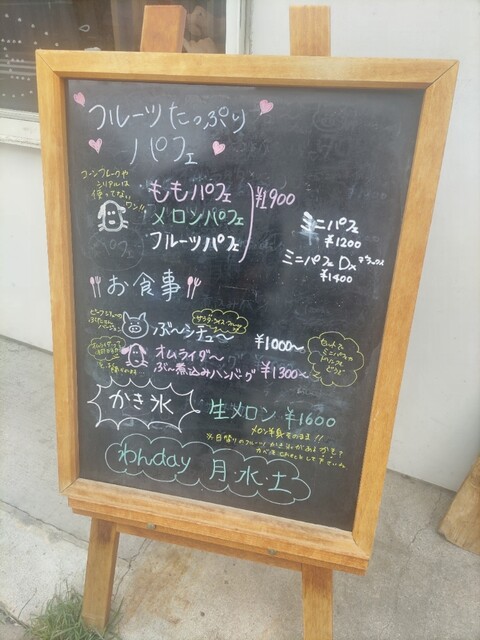 フルーツたっぷり
パフェ
コーンフレークや
シリアルは
使ってない
ワン!!
ももパフェ
メロンパフェ
フルーツパフェ
¥1900
ミニパフェ
¥1200
ミニパフェDx デラックス
¥1400
お食事
ビーフシチューの
バージョン
サラダ・ライス・スープ
ぶ〜シチュ〜
¥1000〜
オムライダ〜
ぶ〜煮込みハンバーグ
¥1300〜
セットで
ミニパフェや
ドリンクも
どうぞ
かき氷
生メロン ¥1600
メロン半身そのまま!!
※日替りのフルーツかき氷があるかも?
わんday 月・水・土